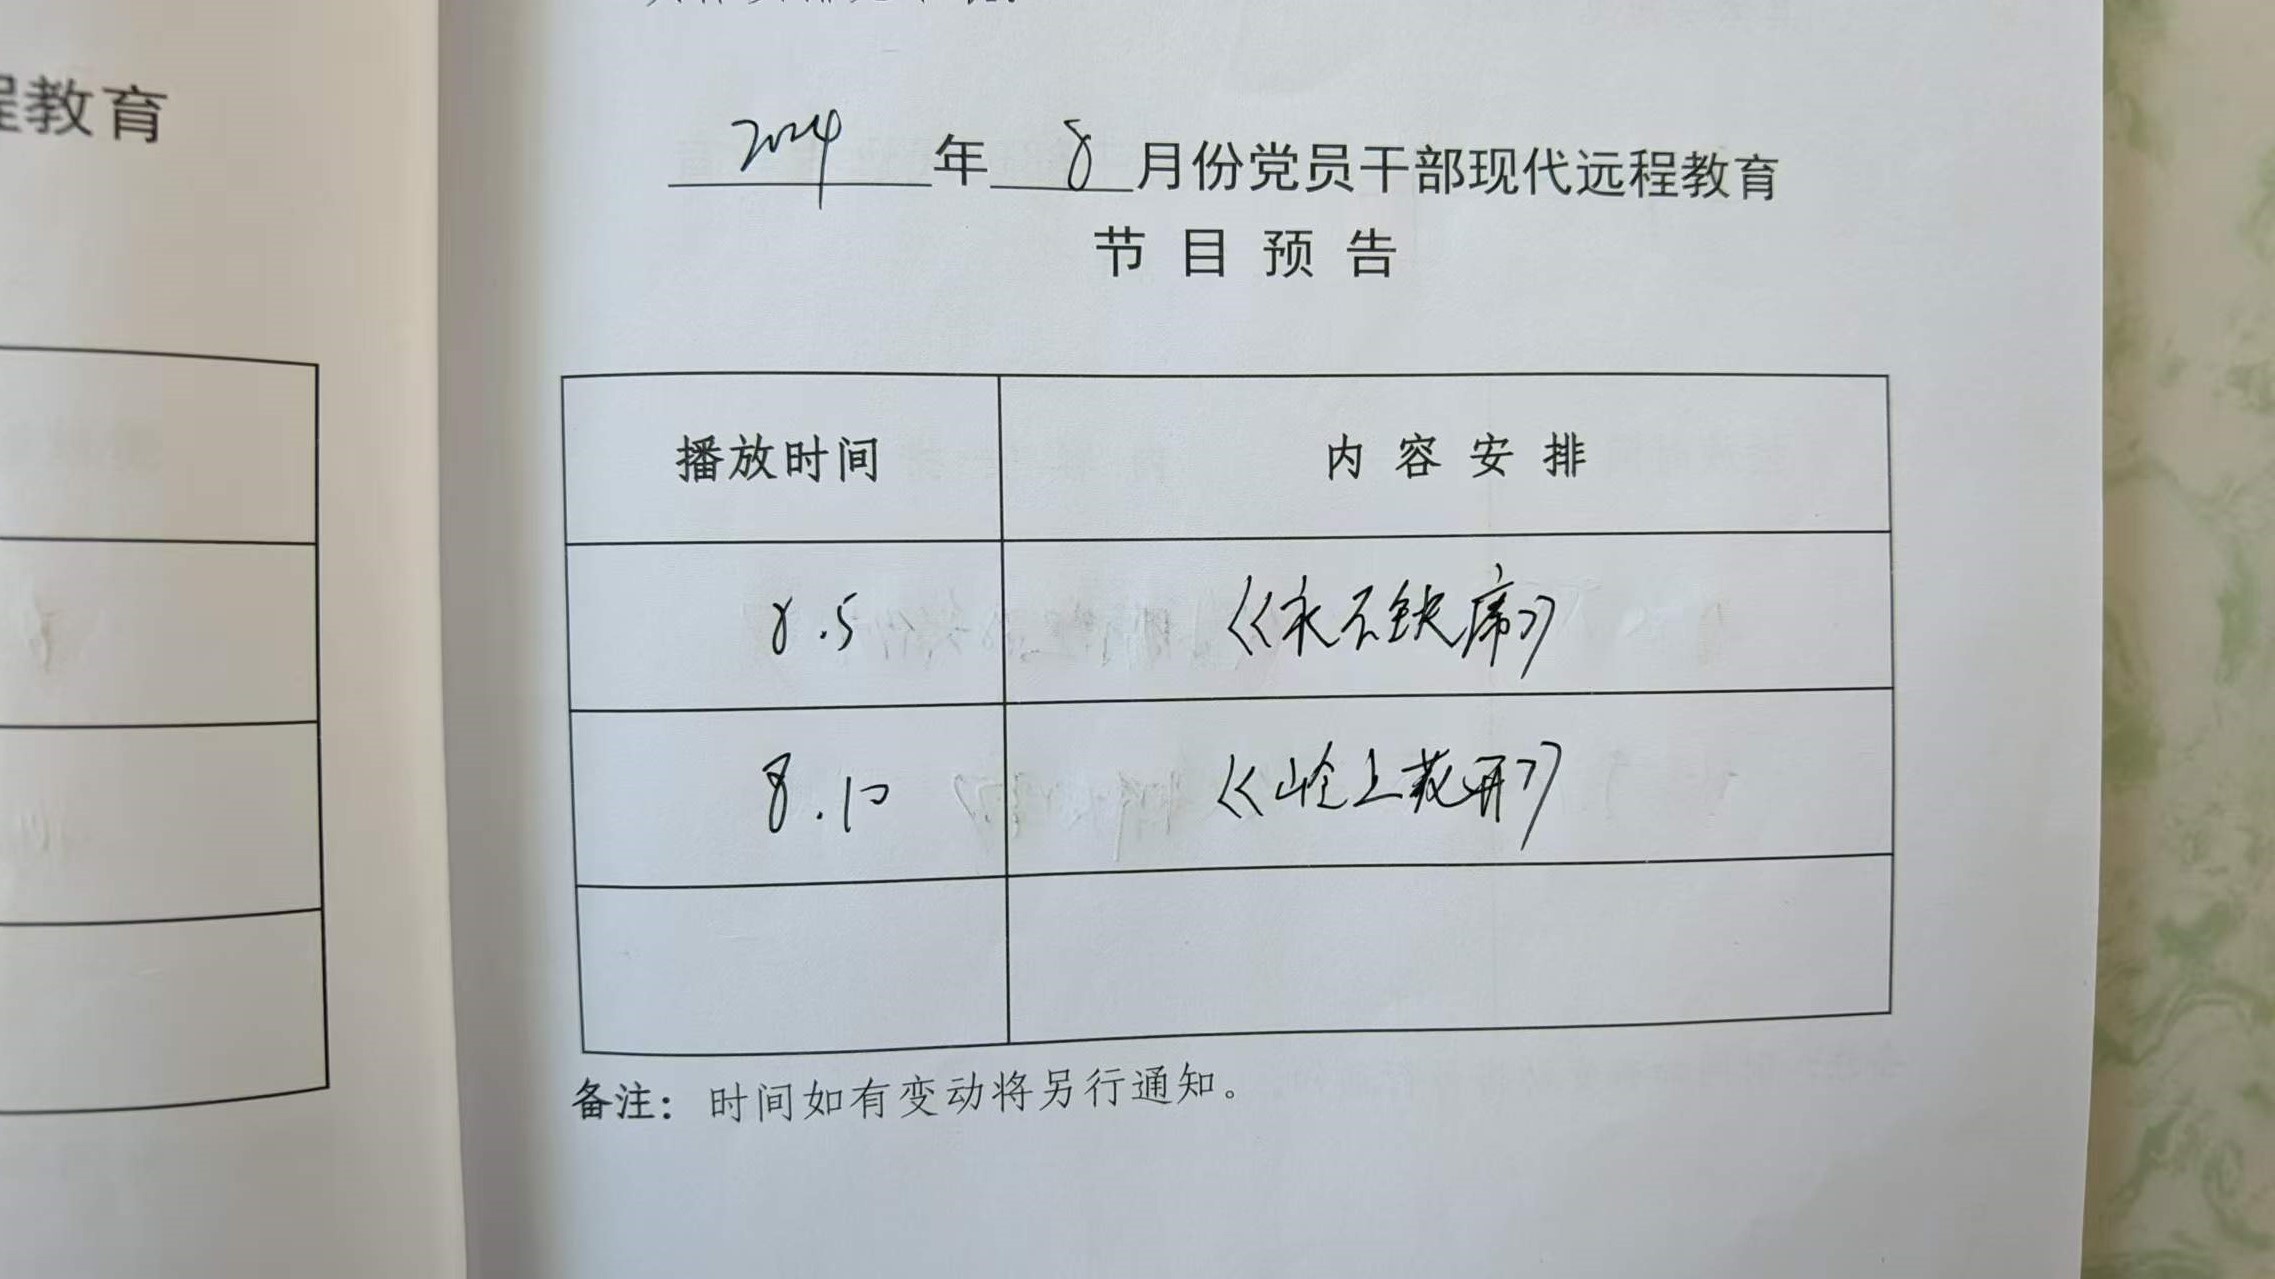 程教育
2024年8月份党员干部现代远程教育
节目预告
播放时间 内容安排
8.5 《永不缺席》
8.10 《岭上花开》
备注：时间如有变动将另行通知。